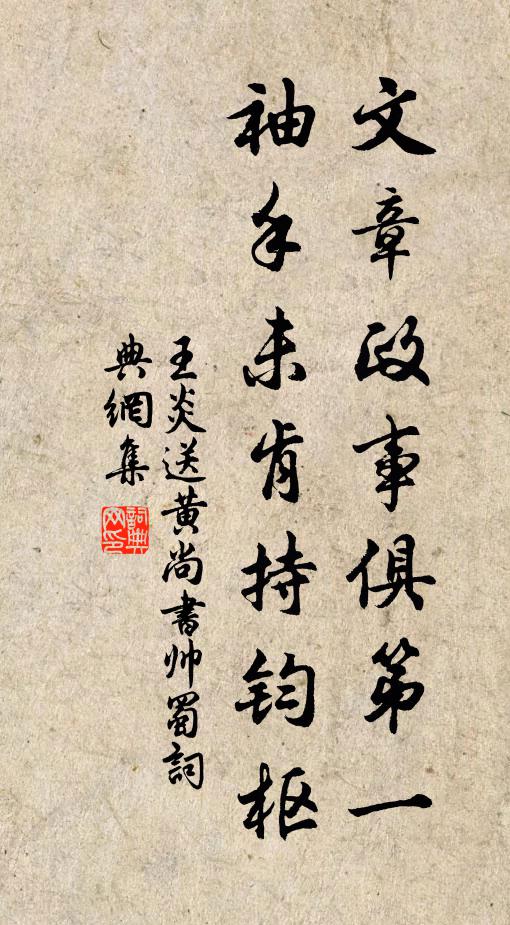 文章政事俱第一
袖手未肯持钧枢
王炎送黄尚書帅蜀詞
典網集
詞典網印